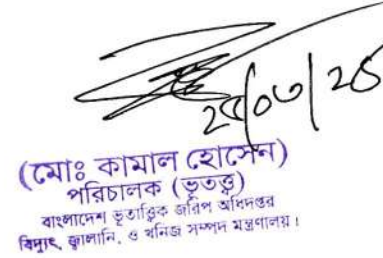 ২৫/০৩/২৫
(মোঃ কামাল হোসেন)
পরিচালক (ভূতত্ত্ব)
বাংলাদেশ ভূতাত্ত্বিক জরিপ অধিদপ্তর
বিদ্যুৎ, জ্বালানি, ও খনিজ সম্পদ মন্ত্রণালয়।